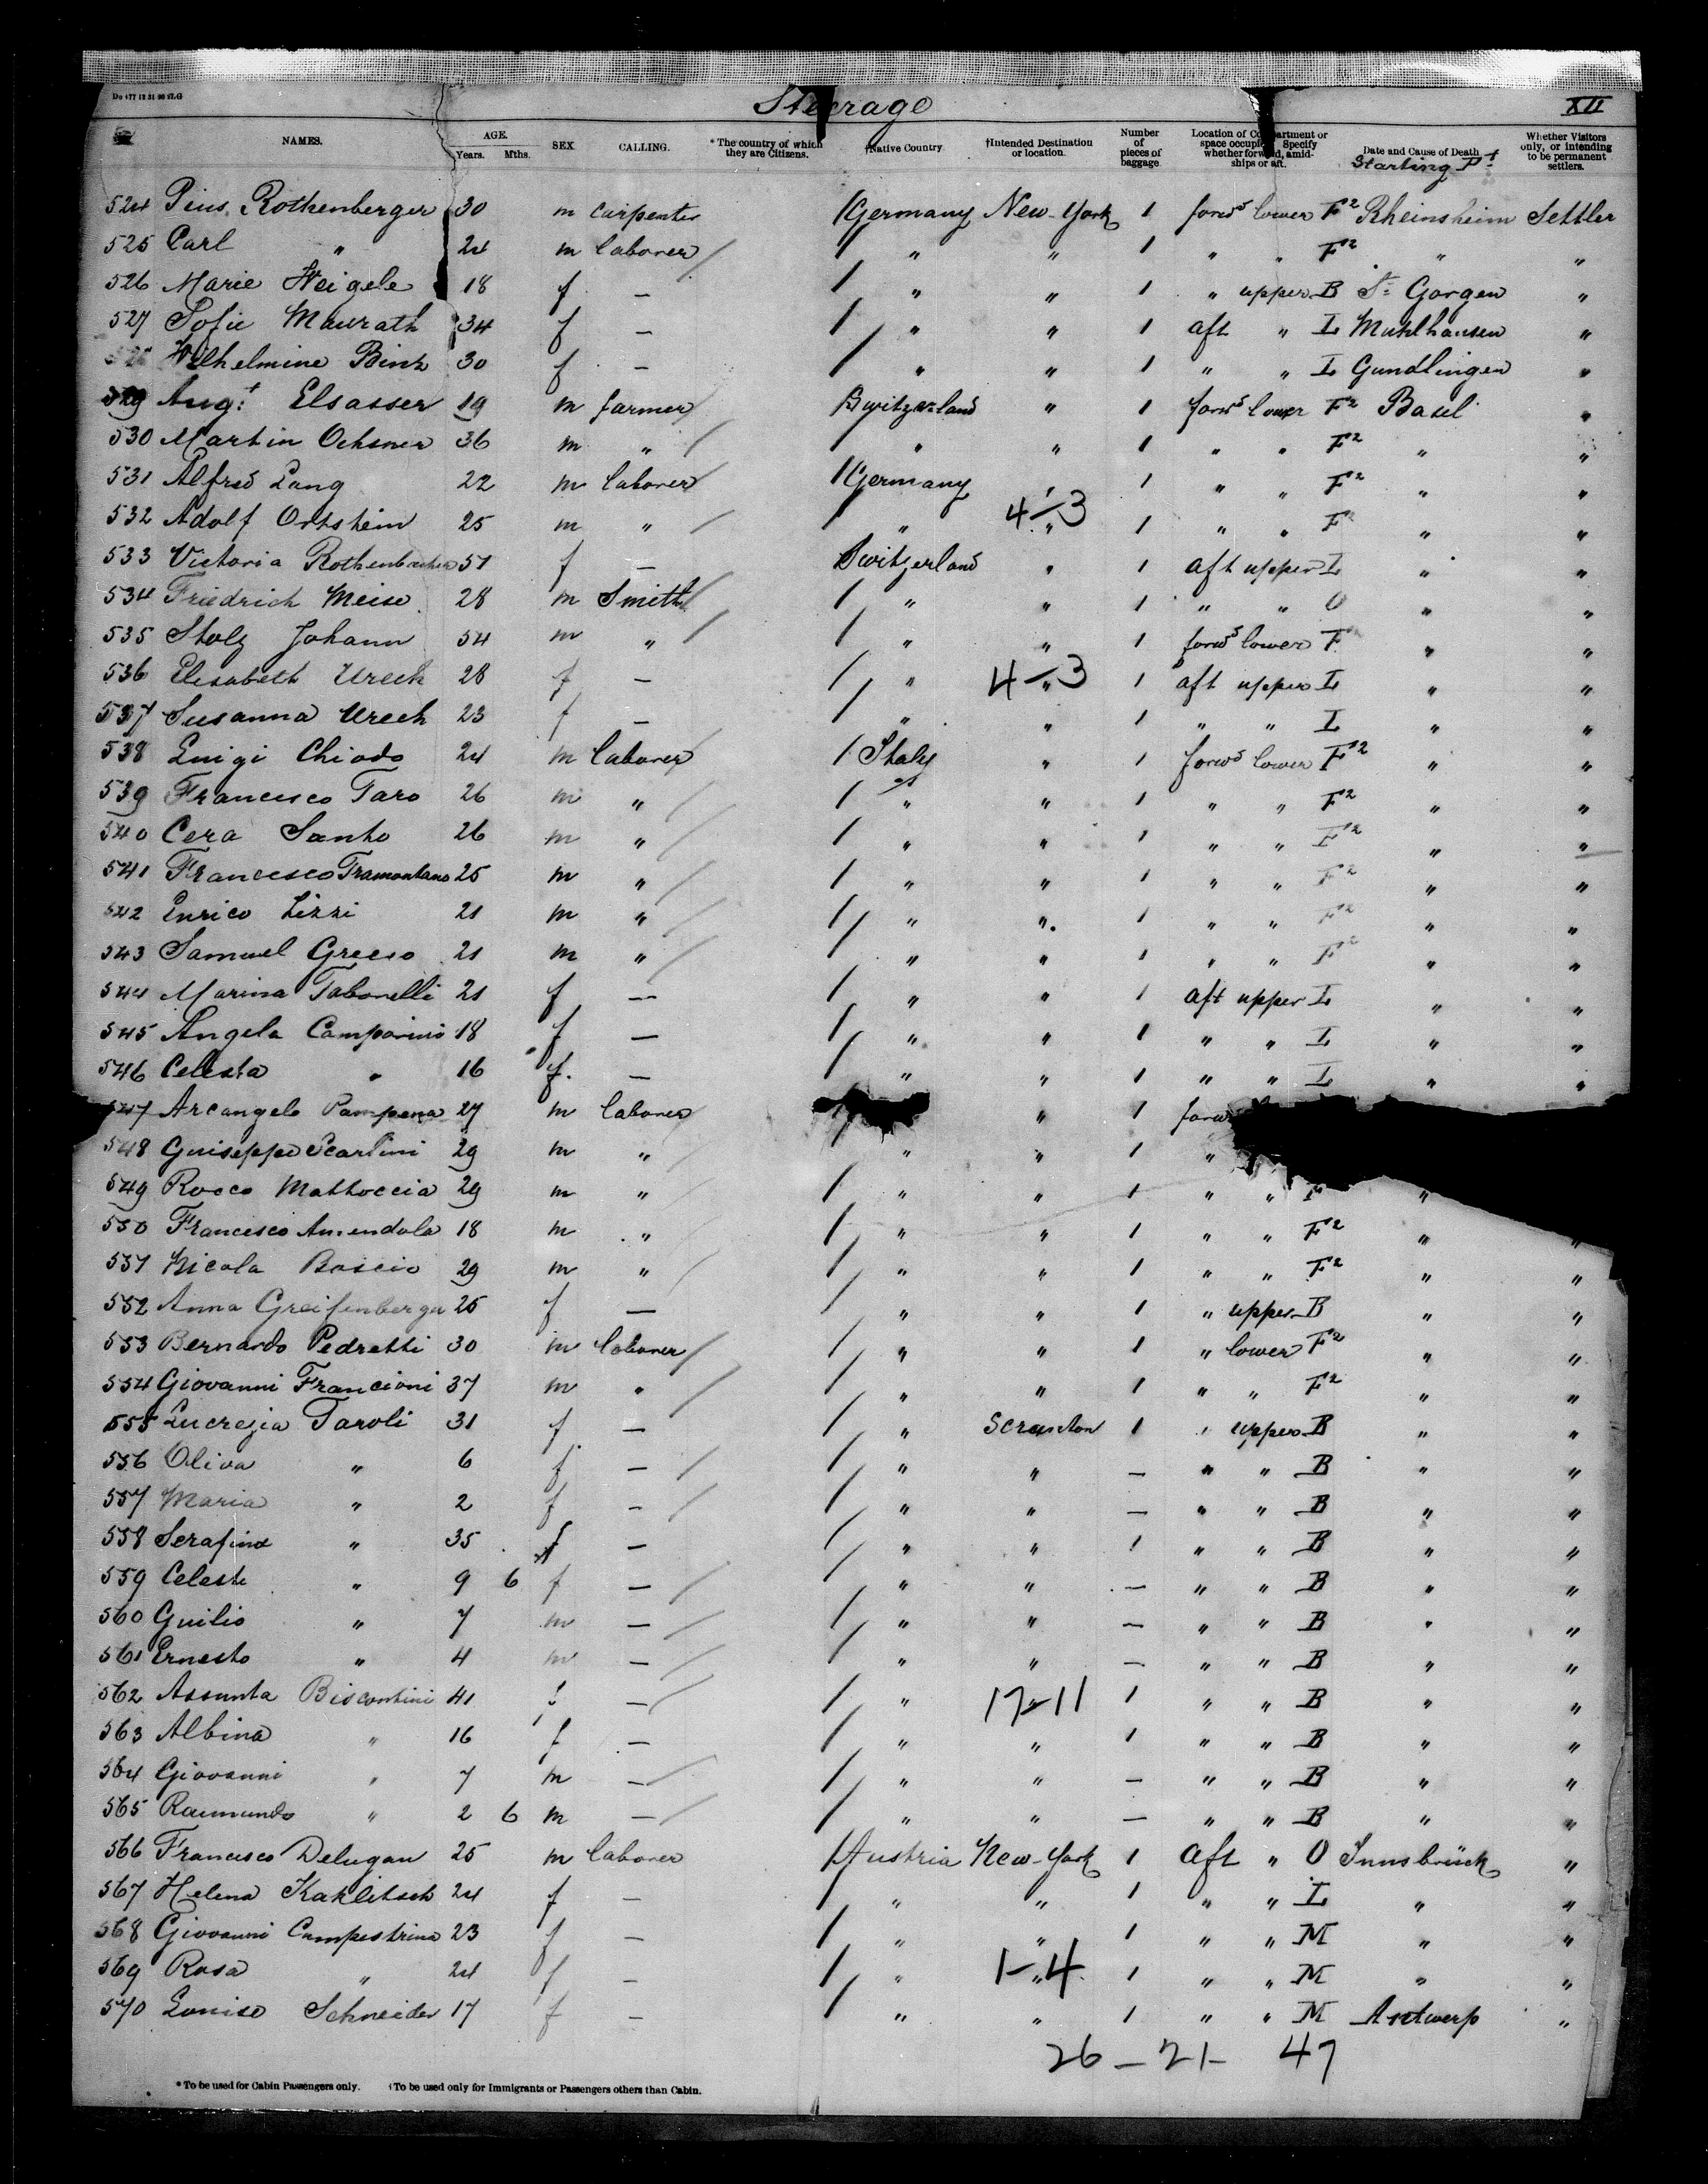 Steerage
XII
NAMES. AGE. Years. Mths. SEX CALLING. *The country of which they are Citizens. †Native Country †Intended Destination or location. Number of pieces of baggage. Location of Compartment or space occupied. Specify whether forward, amidships or aft. Date and Cause of Death Whether Visitors only, or intending to be permanent settlers.
Starting Pt
524 Pius Rothenberger 30 m carpenter Germany New-York 1 forwd lower F2 Rheinsheim Settler
525 Carl " 24 m laborer " " 1 " " F2 " "
526 Marie Weigele 18 f — " " 1 " upper B St Gorgen "
527 Sofie Maurath 34 f — " " 1 aft " L Muhlhausen "
Wilhelmine Binz 30 f — " " 1 " " L Gundlingen "
529 Augt Elsasser 19 m farmer Switzerland " 1 forwd lower F2 Basel "
530 Martin Ochsner 36 m " " " 1 " " F2 " "
531 Alfred Lang 22 m laborer Germany " 1 " " F2 " "
532 Adolf Ortstein 25 m " " 4-3 " 1 " " F2 " "
533 Victoria Rothenbacher 51 f — Switzerland " 1 aft upper L " "
534 Friedrich Meise 28 m Smith " " 1 " " O " "
535 Stolz Johann 54 m " " " 1 forwd lower F " "
536 Elisabeth Urech 28 f — " 4-3 " 1 aft upper L " "
537 Susanna Urech 23 f — " " 1 " " L " "
538 Luigi Chiodo 24 m laborer Italy " 1 forwd lower F2 " "
539 Francesco Taro 26 m " " " 1 " " F2 " "
540 Cera Santo 26 m " " " 1 " " F2 " "
541 Francesco Tramontano 25 m " " " 1 " " F2 " "
542 Enrico Lizzi 21 m " " " 1 " " F2 " "
543 Samuel Greco 21 m " " " 1 " " F2 " "
544 Marina Tabonelli 21 f — " " 1 aft upper L " "
545 Angela Camporini 18 f — " " 1 " " L " "
546 Celesta " 16 f. — " " 1 " " L " "
547 Arcangelo Pampena 27 m laborer " 1 forwd
548 Guiseppe Scarlini 29 m " " " 1 "
549 Rocco Mattoccia 29 m " " " 1 " " F "
550 Francesco Amendola 18 m " " " 1 " " F2 " "
551 Nicola Boscio 29 m " " " 1 " " F2 " "
552 Anna Greifenberger 25 f — " " 1 " upper B " "
553 Bernardo Pedretti 30 m laborer " " 1 " lower F2 " "
554 Giovanni Francioni 37 m " " " 1 " " F2 " "
555 Lucrezia Taroli 31 f — " Scranton 1 " upper B " "
556 Oliva " 6 f — " " — " " B " "
557 Maria " 2 f — " " — " " B " "
558 Serafina " 35 f — " " 1 " " B " "
559 Celeste " 9 6 f — " " — " " B " "
560 Guilio " 7 m — " " — " " B " "
561 Ernesto " 4 m — " " — " " B " "
562 Assunta Biscontini 41 f — " 17-11 " 1 " " B " "
563 Albina " 16 f — " " 1 " " B " "
564 Giovanni " 7 m — " " — " " B " "
565 Raimundo " 2 6 m — " " — " " B " "
566 Francesco Delugan 25 m laborer Austria New-York 1 aft " O Innsbrück "
567 Helena Kaklitsch 24 f — " " 1 " " L " "
568 Giovanni Campestrina 23 f — " " 1 " " M " "
569 Rosa " 24 f — " 1-4 " 1 " " M " "
570 Louise Schneider 17 f — " " 1 " " M Antwerp "
26 - 21 - 47
*To be used for Cabin Passengers only. †To be used only for Immigrants or Passengers others than Cabin.